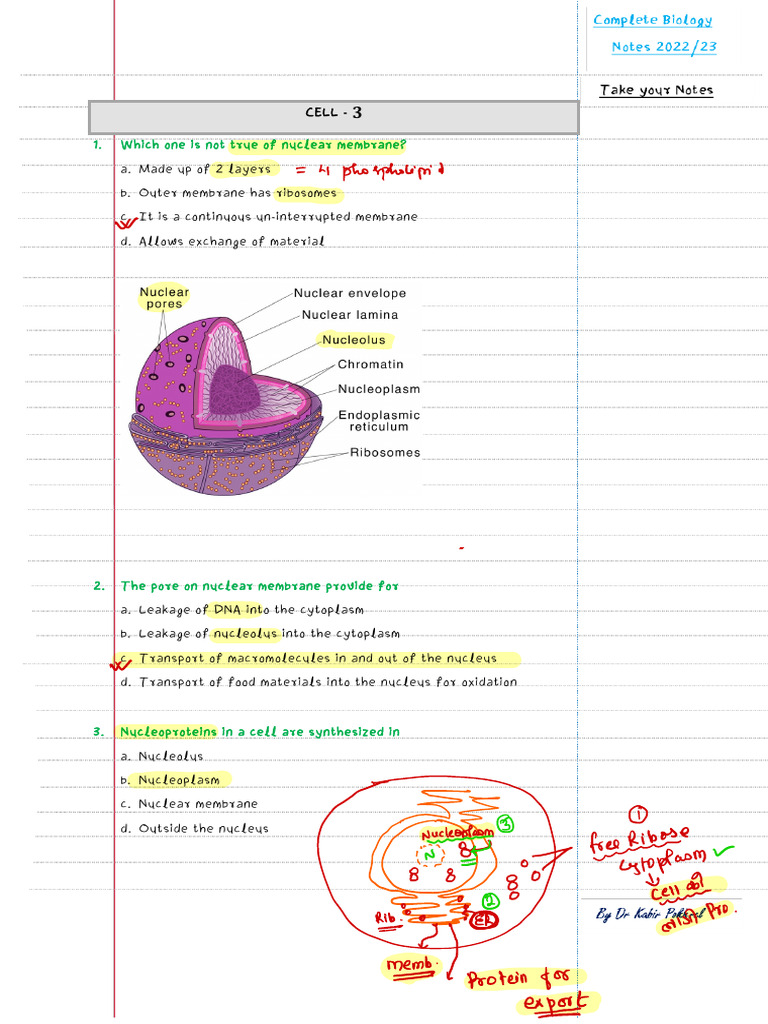 Complete Biology
Notes 2022/23
Take your Notes
CELL - 3
1. Which one is not true of nuclear membrane?
a. Made up of 2 layers = 4 phospholipid
b. Outer membrane has ribosomes
c. It is a continuous un-interrupted membrane
d. Allows exchange of material
Nuclear pores
Nuclear envelope
Nuclear lamina
Nucleolus
Chromatin
Nucleoplasm
Endoplasmic
reticulum
Ribosomes
2. The pore on nuclear membrane provide for
a. Leakage of DNA into the cytoplasm
b. Leakage of nucleolus into the cytoplasm
c. Transport of macromolecules in and out of the nucleus
d. Transport of food materials into the nucleus for oxidation
3. Nucleoproteins in a cell are synthesized in
a. Nucleolus
b. Nucleoplasm
c. Nuclear membrane
d. Outside the nucleus
Nucleoplasm 3
N
2
Rib.
ER
memb.
Protein for
export
1
free Ribose
cytoplasm
Cell को
लागि Pro.
By Dr Kabir Pokhrel